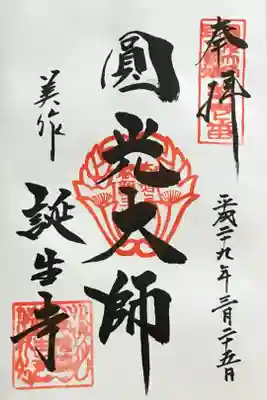 奉拝
平成二九年三月二十五日
圓光大師
美作
誕生寺